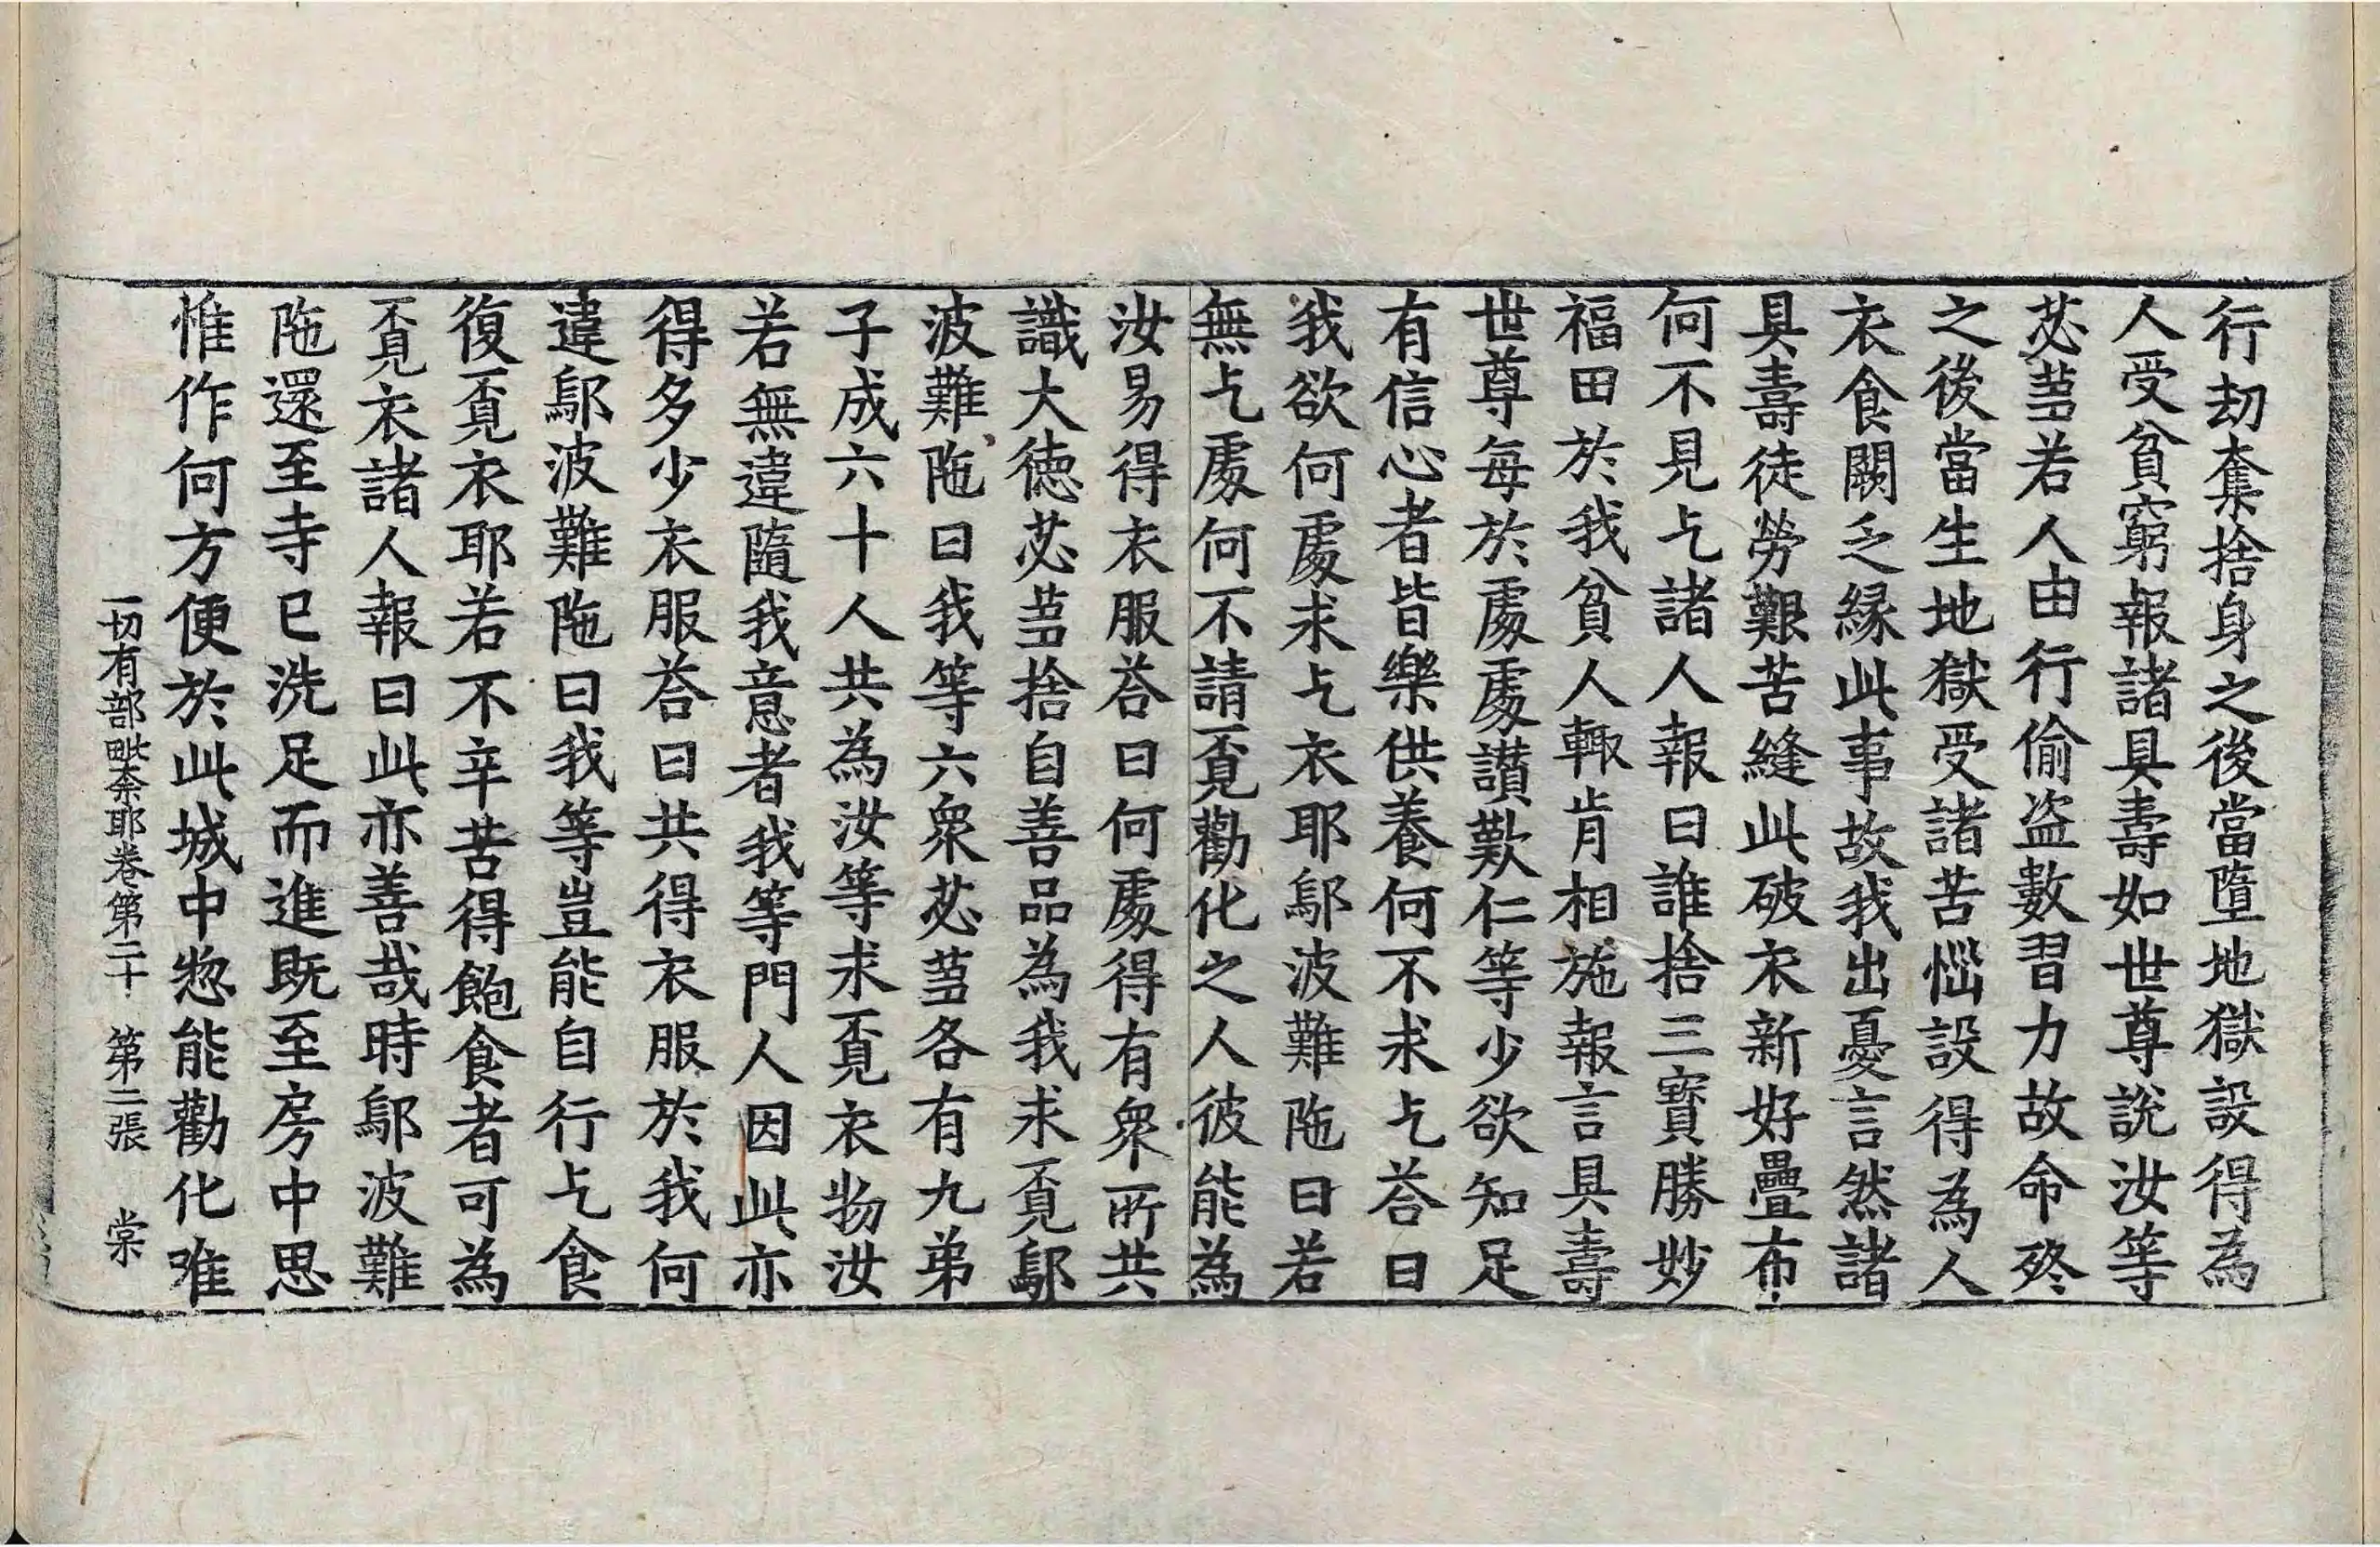 行劫奪捨身之後當墮地獄設得為
人受貧窮報諸具壽如世尊說汝等
苾蒭若人由行偷盜數習力故命終
之後當生地獄受諸苦惱設得為人
衣食闕乏緣此事故我出憂言然諸
具壽徒勞艱苦縫此破衣新好疊布
何不見乞諸人報曰誰捨三寶勝妙
福田於我貧人輙肯相施報言具壽
世尊每於處處讃歎仁等少欲知足
有信心者皆樂供養何不求乞荅曰
我欲何處求乞衣耶鄔波難陁曰若
無乞處何不請覔勸化之人彼能為
汝易得衣服荅曰何處得有衆所共
識大德苾蒭捨自善品為我求覔鄔
波難陁曰我等六衆苾蒭各有九弟
子成六十人共為汝等求覔衣物汝
若無違隨我意者我等門人因此亦
得多少衣服荅曰共得衣服於我何
違鄔波難陁曰我等豈能自行乞食
復覔衣耶若不辛苦得飽食者可為
覔衣諸人報曰此亦善哉時鄔波難
陁還至寺已洗足而進既至房中思
惟作何方便於此城中惣能勸化唯
一切有部毗奈耶卷第二十 第二張 棠